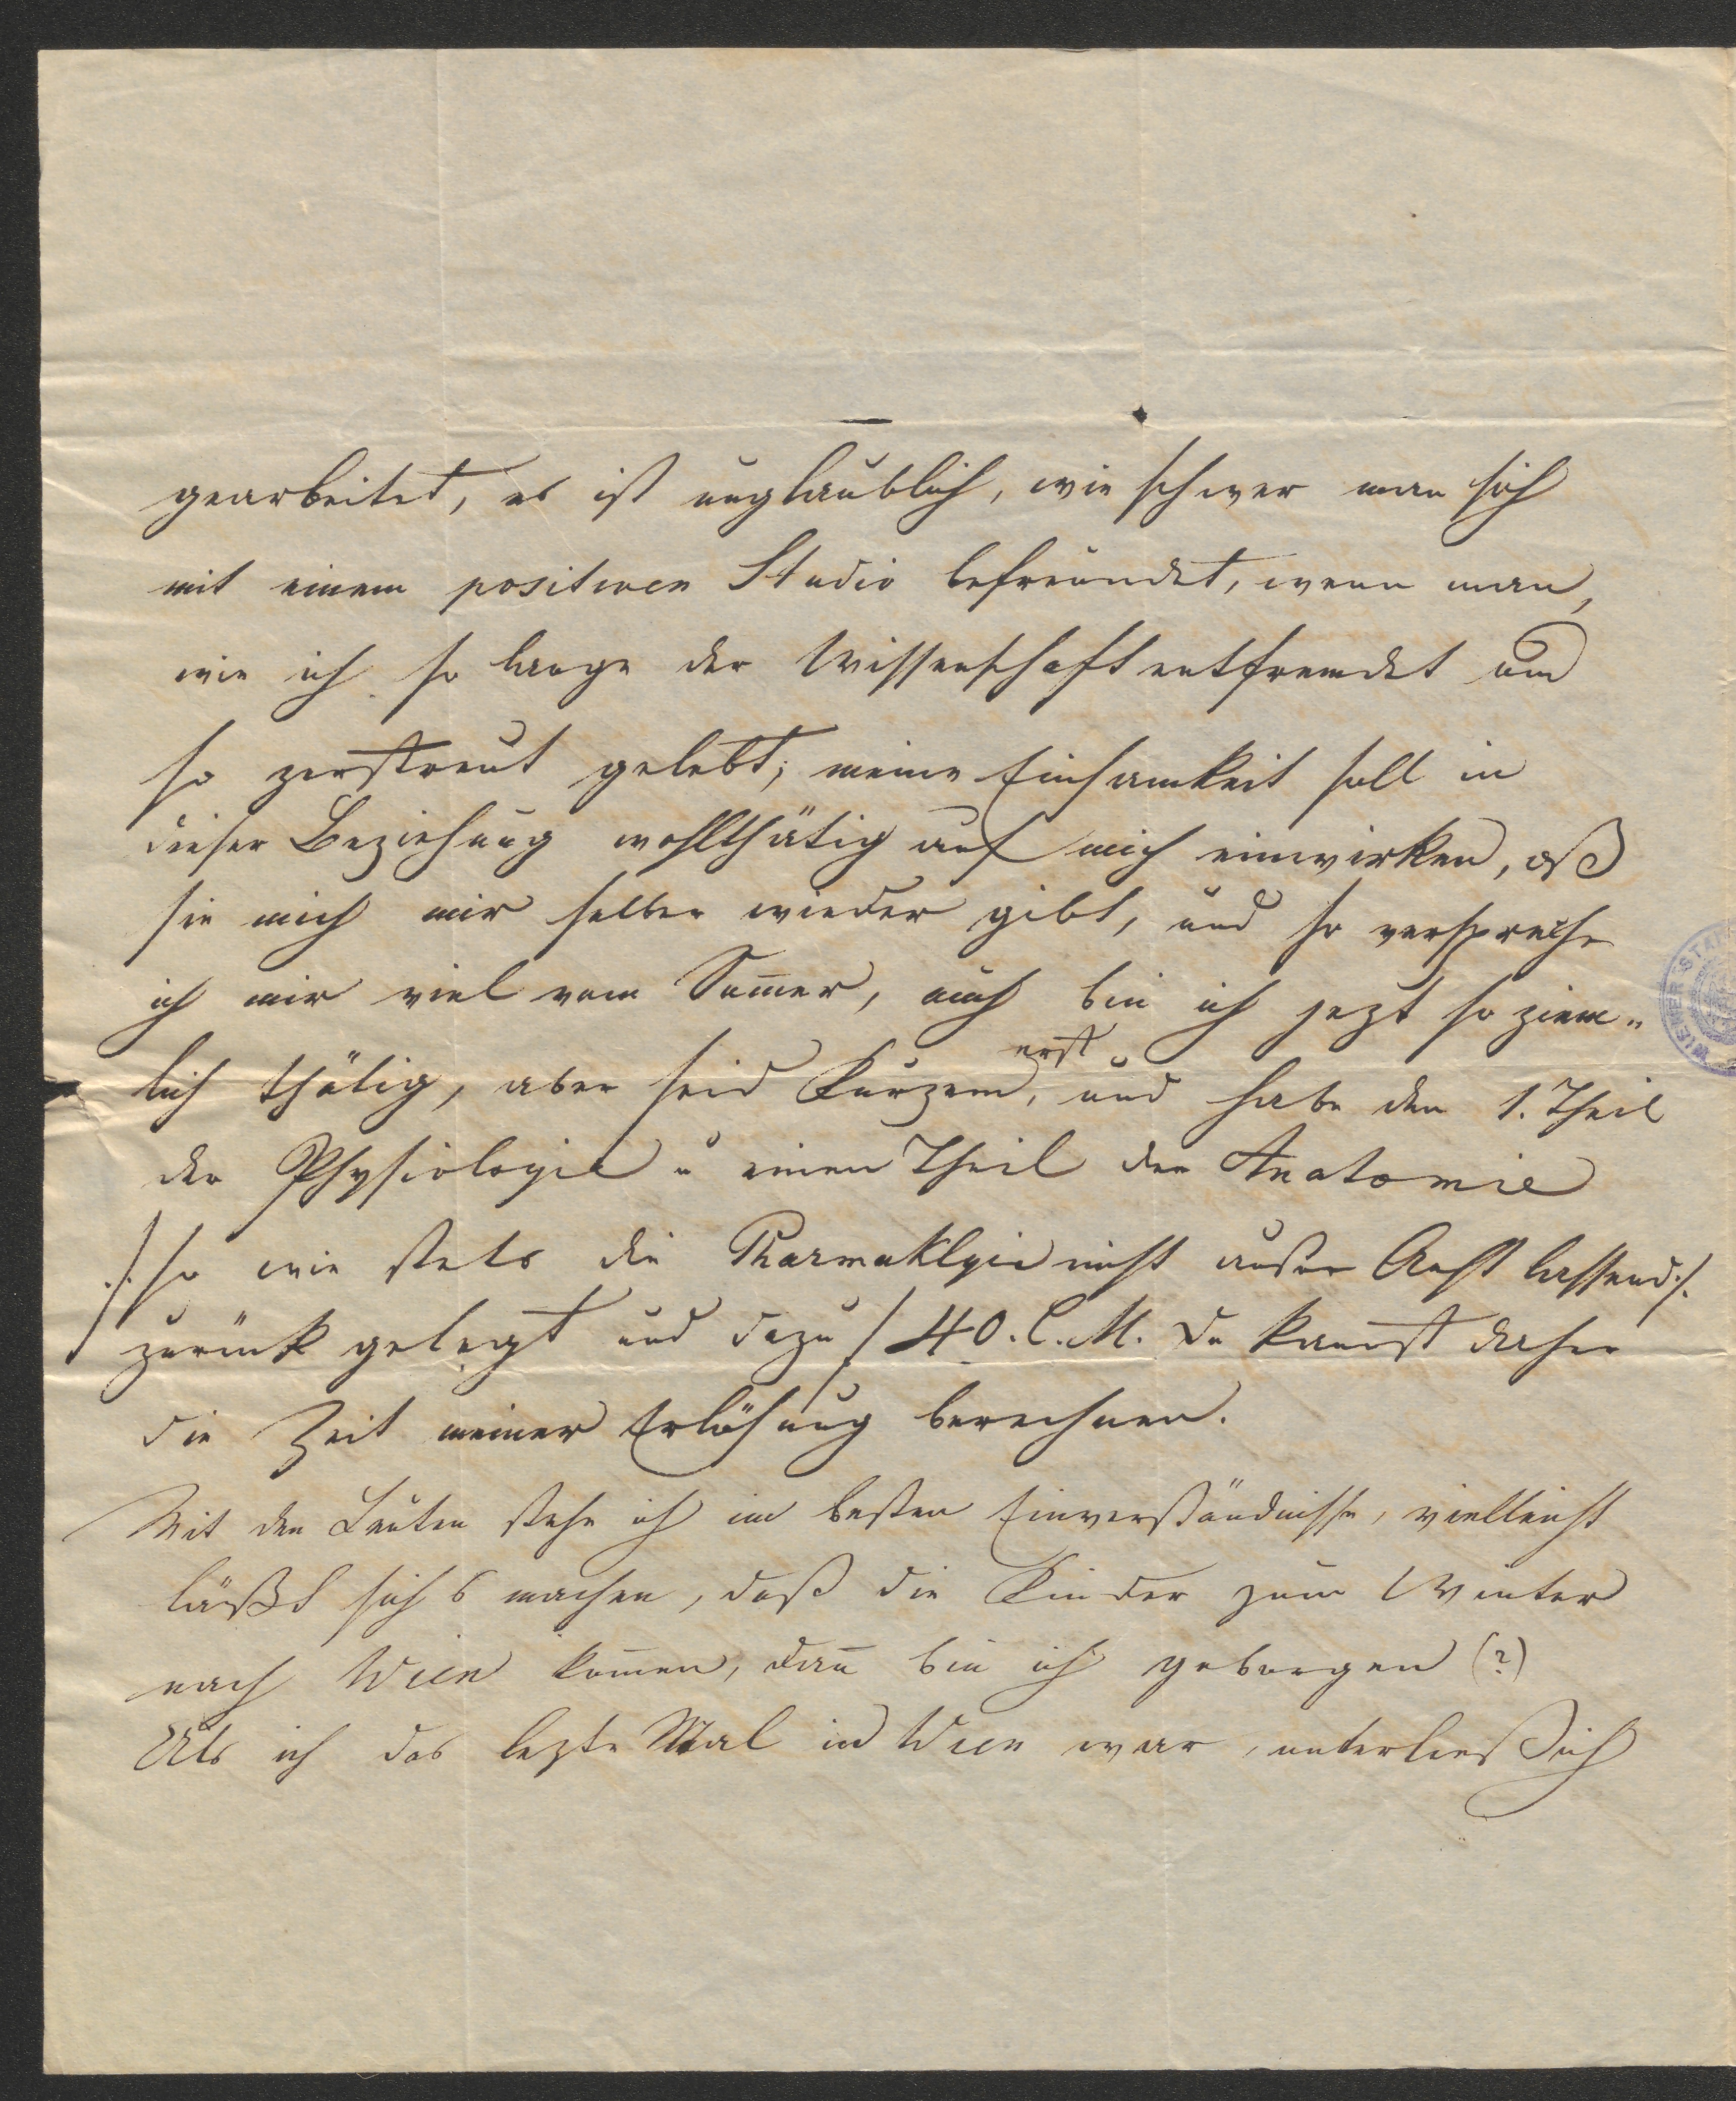 gearbeitet, es ist unglaublich, wie schwer man sich
mit einem positiven Studio befreundet, wenn man,
wie ich so lange der Wissenschaft entfremdet und
so zerstreut gelebt; meine Einsamkeit soll in
dieser Beziehung wohlthätig auf mich einwirken, daß
sie mich mir selber wieder gibt, und so verspreche
ich mir viel vom Som̅er, auch bin ich jezt so ziem„
lich thätig, aber seid Kurzem erst, und habe den 1. Theil
der Physiologie u einen Theil der Anatomie
./. so wie stets die Pharmaklgie nicht außer Acht lassend ./.
zurück gelegt und dazu f 40. C. M. Du kannst daher
die Zeit meiner Erlösung berechnen.
Mit den Leuten stehe ich im besten Einverständnisse, vielleicht
läßt sichs machen, daß die Kinder zum Winter
nach Wien kom̅en, dan̅ bin ich geborgen (?)
Als ich das lezte Mal in Wien war, unterließ ich
WIENER STA